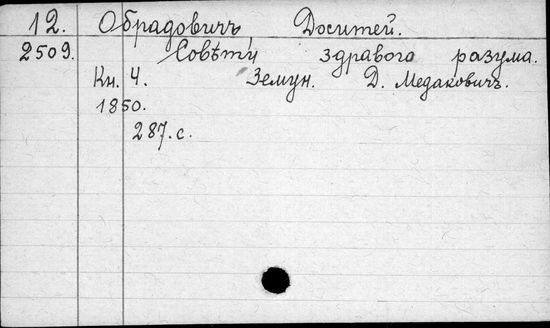 12. Обрадовичъ Доситей.
2509. Совѣти здравого разума.
Кн. 4. Земун. Д. Медаковичъ.
1850.
287. с.